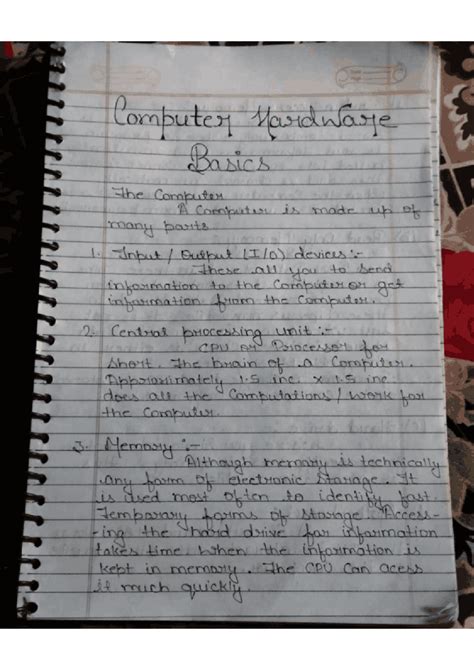 Computer Hardware
Basics
The Computer
A Computer is made up of
many parts.
1. Input / Output (I/O) devices :-
These all you to send
information to the Computer or get
information from the Computer.
2. Central processing unit :-
CPU or Processor for
short. The brain of a Computer.
Approximately 1.5 inc. x 1.5 inc
does all the Computations / work for
the Computer.
3. Memory :-
Although memory is technically
any form of electronic storage. It
is used most often to identify fast.
Temporary forms of storage. Access-
ing the hard drive for information
takes time when the information is
kept in memory. The CPU Can acess
it much quickly.